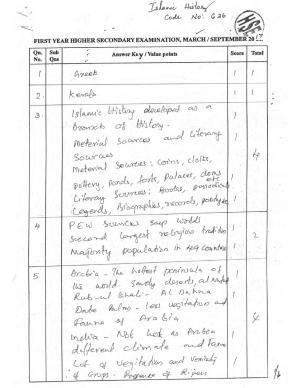 Islamic History
Code No: 626
HSE
FIRST YEAR HIGHER SECONDARY EXAMINATION, MARCH / SEPTEMBER 20
Qn. No. Sub Qns Answer Key / Value points Score Total
1 Greek 1 1
2. Kerala 1 1
3. Islamic History developed as a 1
Branch of History.
Meterial Sources and Literary 1
Sources
Meterial Sources: Coins, cloths, 1
pottery, Ponds, forts, Palaces, etc 4
Literary Sources: Books, periodicals 1
Legends, Biographies, records,
4 PEW Sciences says worlds
second largest religious tradition 1 2
Majority population in 49 countries 1
5 Arabia - The hottest peninsula of 1
the world Sandy deserts,
Rub-ul Khali - Al Dahna
Date Palms - Less vegitation and 1
Fauna of Arabia 4
India - Not hot as Arabia 1
different climate and
Lot of vegitation and Variety 1
of Crops - Presence of Rivers